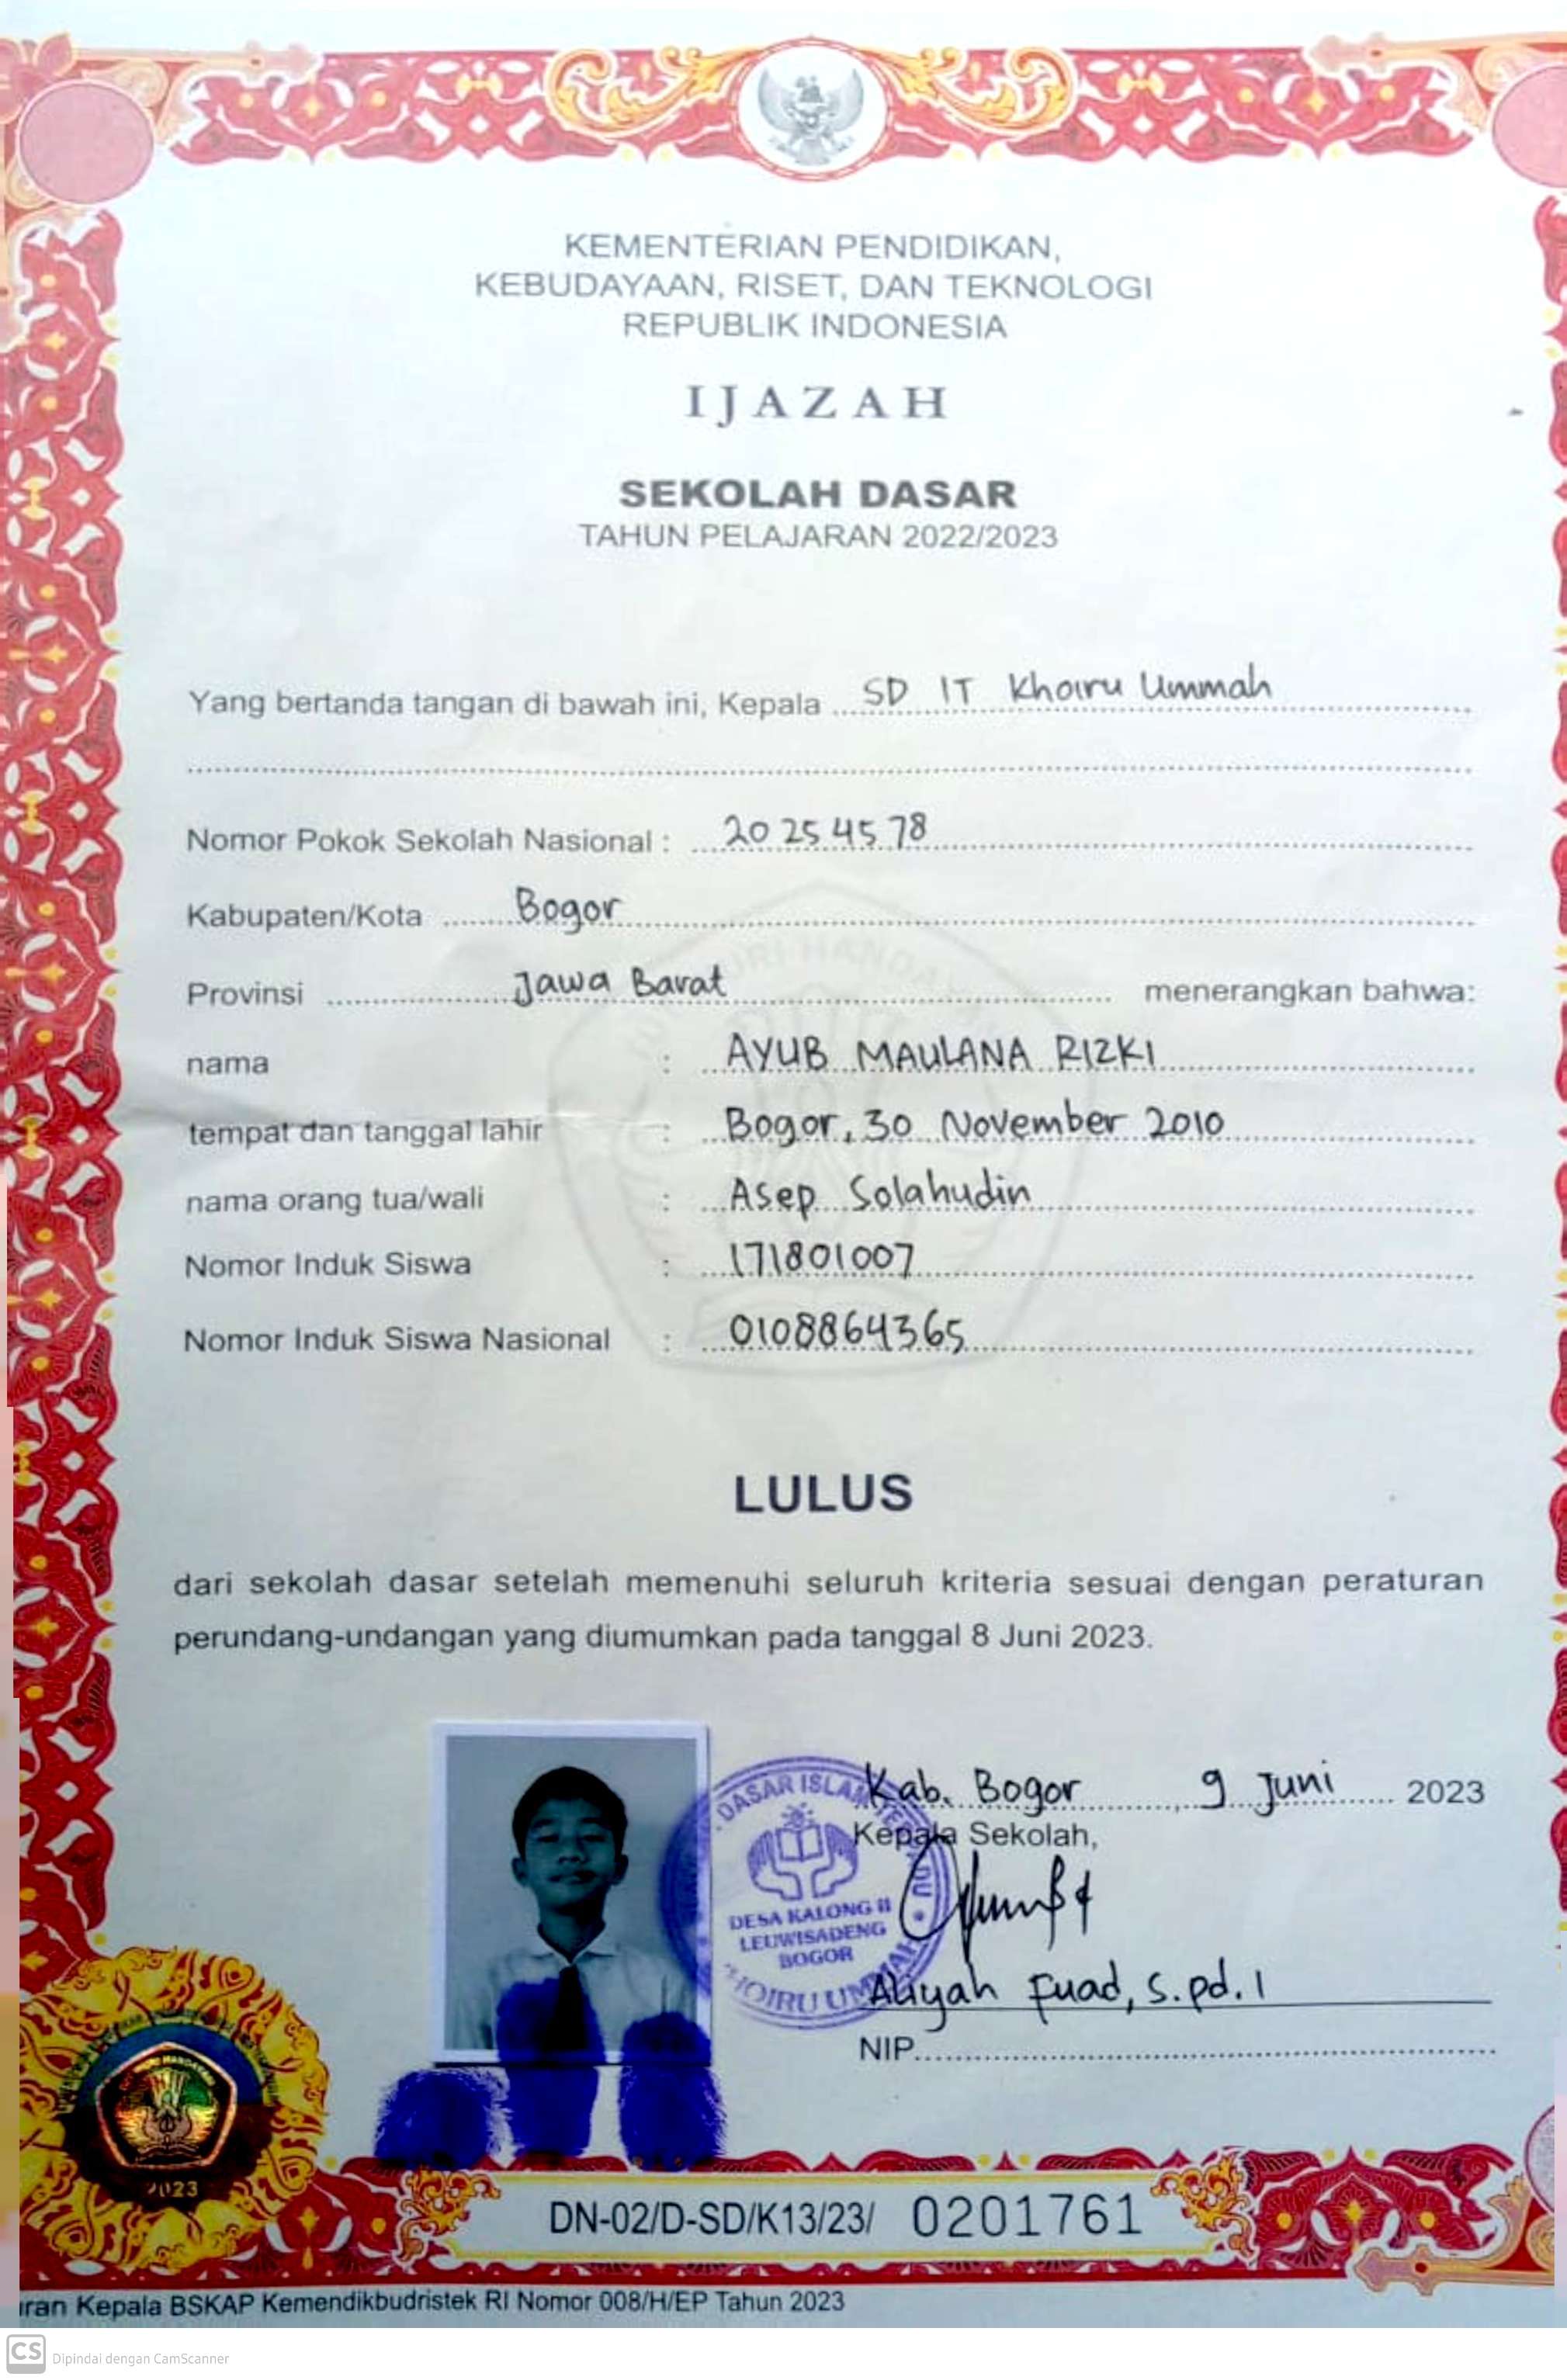 KEMENTERIAN PENDIDIKAN,
KEBUDAYAAN, RISET, DAN TEKNOLOGI
REPUBLIK INDONESIA
IJAZAH
SEKOLAH DASAR
TAHUN PELAJARAN 2022/2023
Yang bertanda tangan di bawah ini, Kepala SD IT Khoiru Ummah
Nomor Pokok Sekolah Nasional : 20254578
Kabupaten/Kota Bogor
Provinsi Jawa Barat menerangkan bahwa:
nama : AYUB MAULANA RIZKI
tempat dan tanggal lahir : Bogor, 30 November 2010
nama orang tua/wali : Asep Solahudin
Nomor Induk Siswa : 171801007
Nomor Induk Siswa Nasional : 0108864365
LULUS
dari sekolah dasar setelah memenuhi seluruh kriteria sesuai dengan peraturan
perundang-undangan yang diumumkan pada tanggal 8 Juni 2023.
Kab. Bogor, 9 Juni 2023
Kepala Sekolah,
DASAR ISLAM
DESA KALONG II
LEUWISADENG
BOGOR
UMMAH
Aliyah Fuad, S.pd.I
NIP
2023
DN-02/D-SD/K13/23/ 0201761
Kepala BSKAP Kemendikbudristek RI Nomor 008/H/EP Tahun 2023
CS Dipindai dengan CamScanner